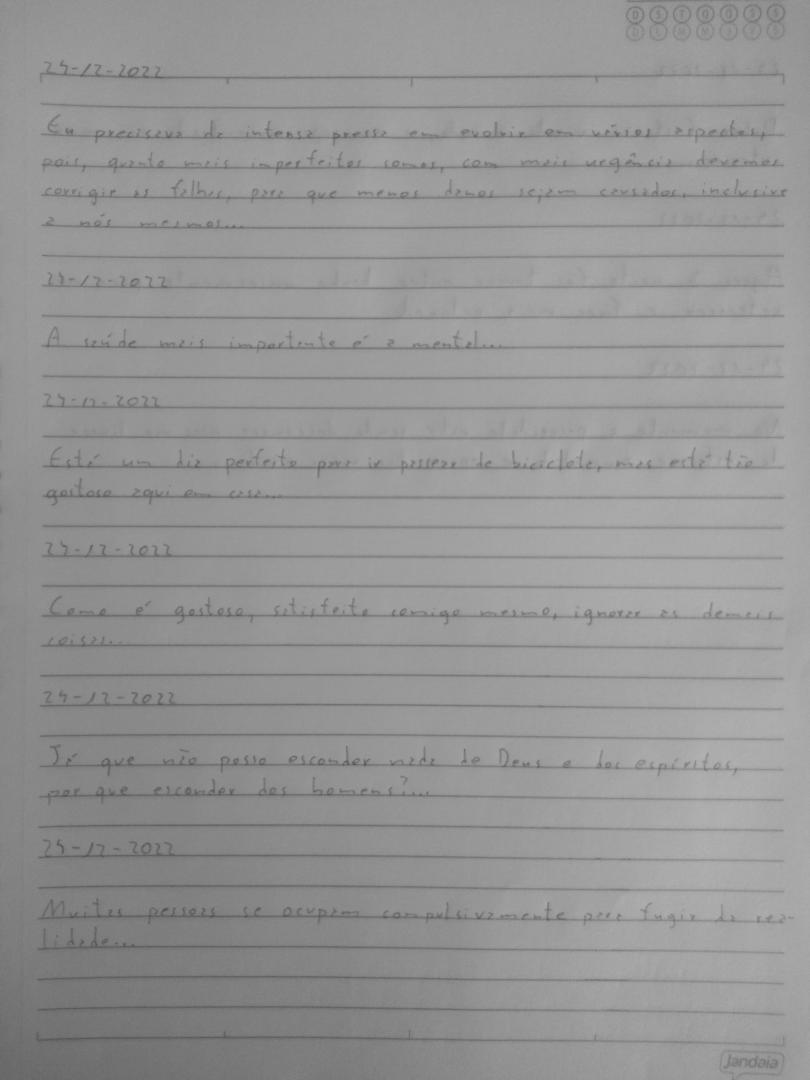 D S T Q Q S S
D L M M J V S
24-12-2022
Eu precisava da intensa pressa em evoluir em vários aspectos,
pois, quanto mais imperfeitos somos, com mais urgência devemos
corrigir as falhas, para que menos danos sejam causados, inclusive
a nós mesmos...
24-12-2022
A saúde mais importante é a mental...
24-12-2022
Está um dia perfeito para ir passear de bicicleta, mas está tão
gostoso aqui em casa...
24-12-2022
Como é gostoso, satisfeito comigo mesmo, ignorar as demais
coisas...
24-12-2022
Já que não posso esconder nada de Deus e dos espíritos,
por que esconder dos homens?...
24-12-2022
Muitas pessoas se ocupam compulsivamente para fugir da rea-
lidade...
Jandaia